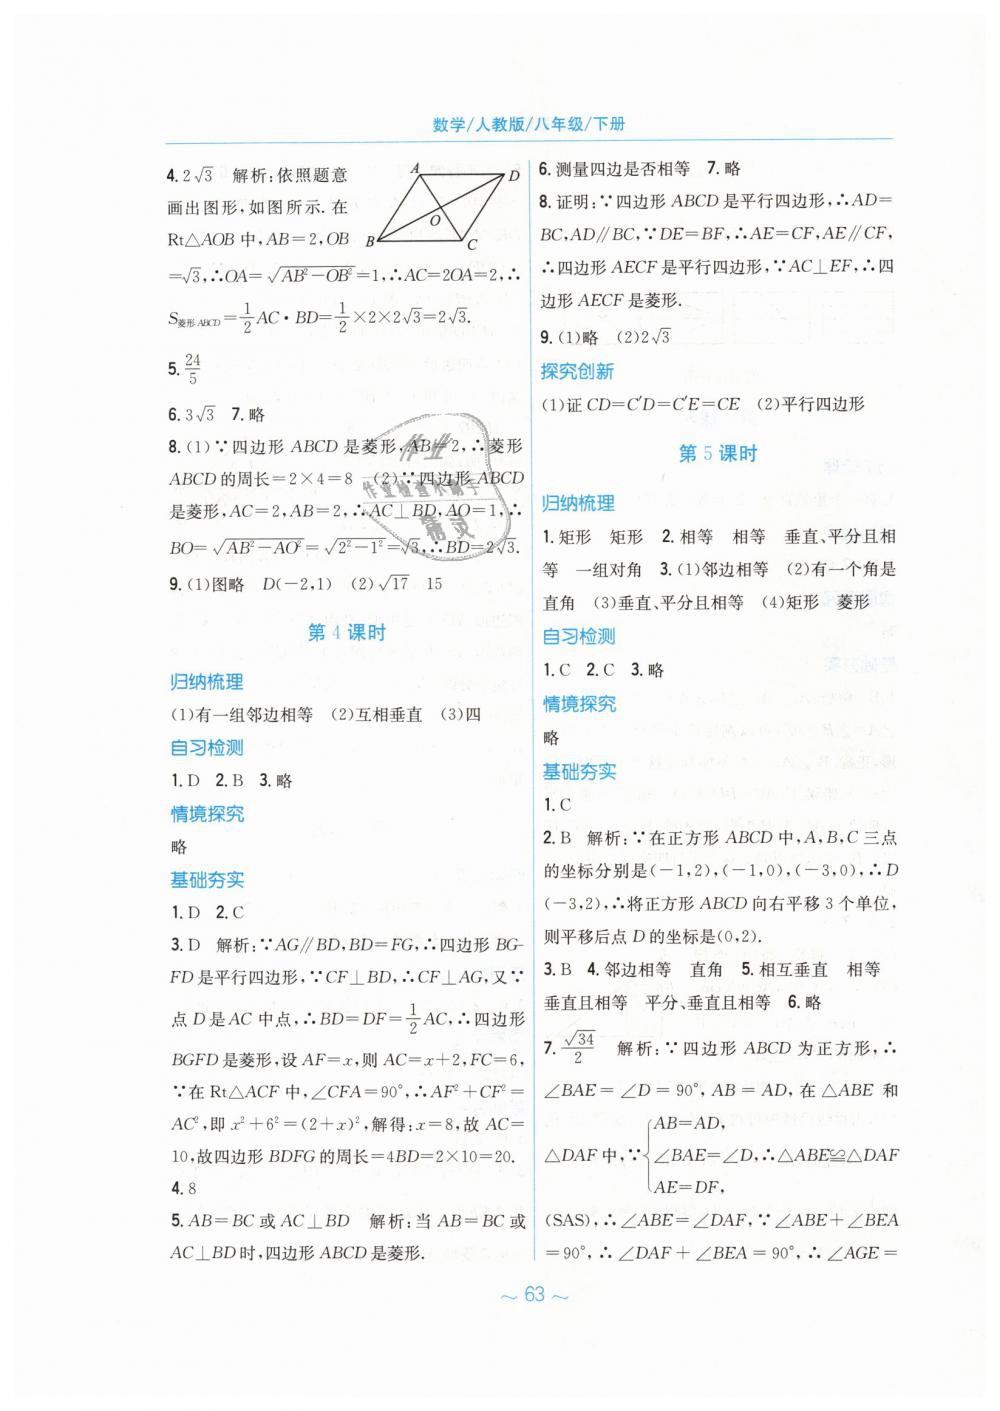 数学/人教版/八年级/下册
4.2√3　解析:依照题意
画出图形,如图所示.在
Rt△AOB中,AB=2,OB
=√3,∴OA=√(AB²-OB²)=1,∴AC=2OA=2,∴
S菱形ABCD=1/2 AC·BD=1/2×2×2√3=2√3.
A
D
O
B
C
5.24/5
6.3√3　7.略
8.(1)∵四边形ABCD是菱形,AB=2,∴菱形
ABCD的周长=2×4=8　(2)∵四边形ABCD
是菱形,AC=2,AB=2,∴AC⊥BD,AO=1,∴
BO=√(AB²-AO²)=√(2²-1²)=√3,∴BD=2√3.
9.(1)图略　D(-2,1)　(2)√17　15
第4课时
归纳梳理
(1)有一组邻边相等　(2)互相垂直　(3)四
自习检测
1.D　2.B　3.略
情境探究
略
基础夯实
1.D　2.C
3.D　解析:∵AG∥BD,BD=FG,∴四边形BG-
FD是平行四边形,∵CF⊥BD,∴CF⊥AG,又∵
点D是AC中点,∴BD=DF=1/2 AC,∴四边形
BGFD是菱形,设AF=x,则AC=x+2,FC=6,
∵在Rt△ACF中,∠CFA=90°,∴AF²+CF²=
AC²,即x²+6²=(2+x)²,解得:x=8,故AC=
10,故四边形BDFG的周长=4BD=2×10=20.
4.8
5.AB=BC或AC⊥BD　解析:当AB=BC或
AC⊥BD时,四边形ABCD是菱形.
6.测量四边是否相等　7.略
8.证明:∵四边形ABCD是平行四边形,∴AD=
BC,AD∥BC,∵DE=BF,∴AE=CF,AE∥CF,
∴四边形AECF是平行四边形,∵AC⊥EF,∴四
边形AECF是菱形.
9.(1)略　(2)2√3
探究创新
(1)证CD=C′D=C′E=CE　(2)平行四边形
第5课时
归纳梳理
1.矩形　矩形　2.相等　相等　垂直、平分且相
等　一组对角　3.(1)邻边相等　(2)有一个角是
直角　(3)垂直、平分且相等　(4)矩形　菱形
自习检测
1.C　2.C　3.略
情境探究
略
基础夯实
1.C
2.B　解析:∵在正方形ABCD中,A,B,C三点
的坐标分别是(-1,2),(-1,0),(-3,0),∴D
(-3,2),∴将正方形ABCD向右平移3个单位,
则平移后点D的坐标是(0,2).
3.B　4.邻边相等　直角　5.相互垂直　相等
垂直且相等　平分、垂直且相等　6.略
7.√34/2　解析:∵四边形ABCD为正方形,∴
∠BAE=∠D=90°,AB=AD,在△ABE和
△DAF中,∵{AB=AD,
∠BAE=∠D,∴△ABE≌△DAF
AE=DF,
(SAS),∴∠ABE=∠DAF,∵∠ABE+∠BEA
=90°,∴∠DAF+∠BEA=90°,∴∠AGE=
作业
作业检查小助手
精灵
~ 63 ~